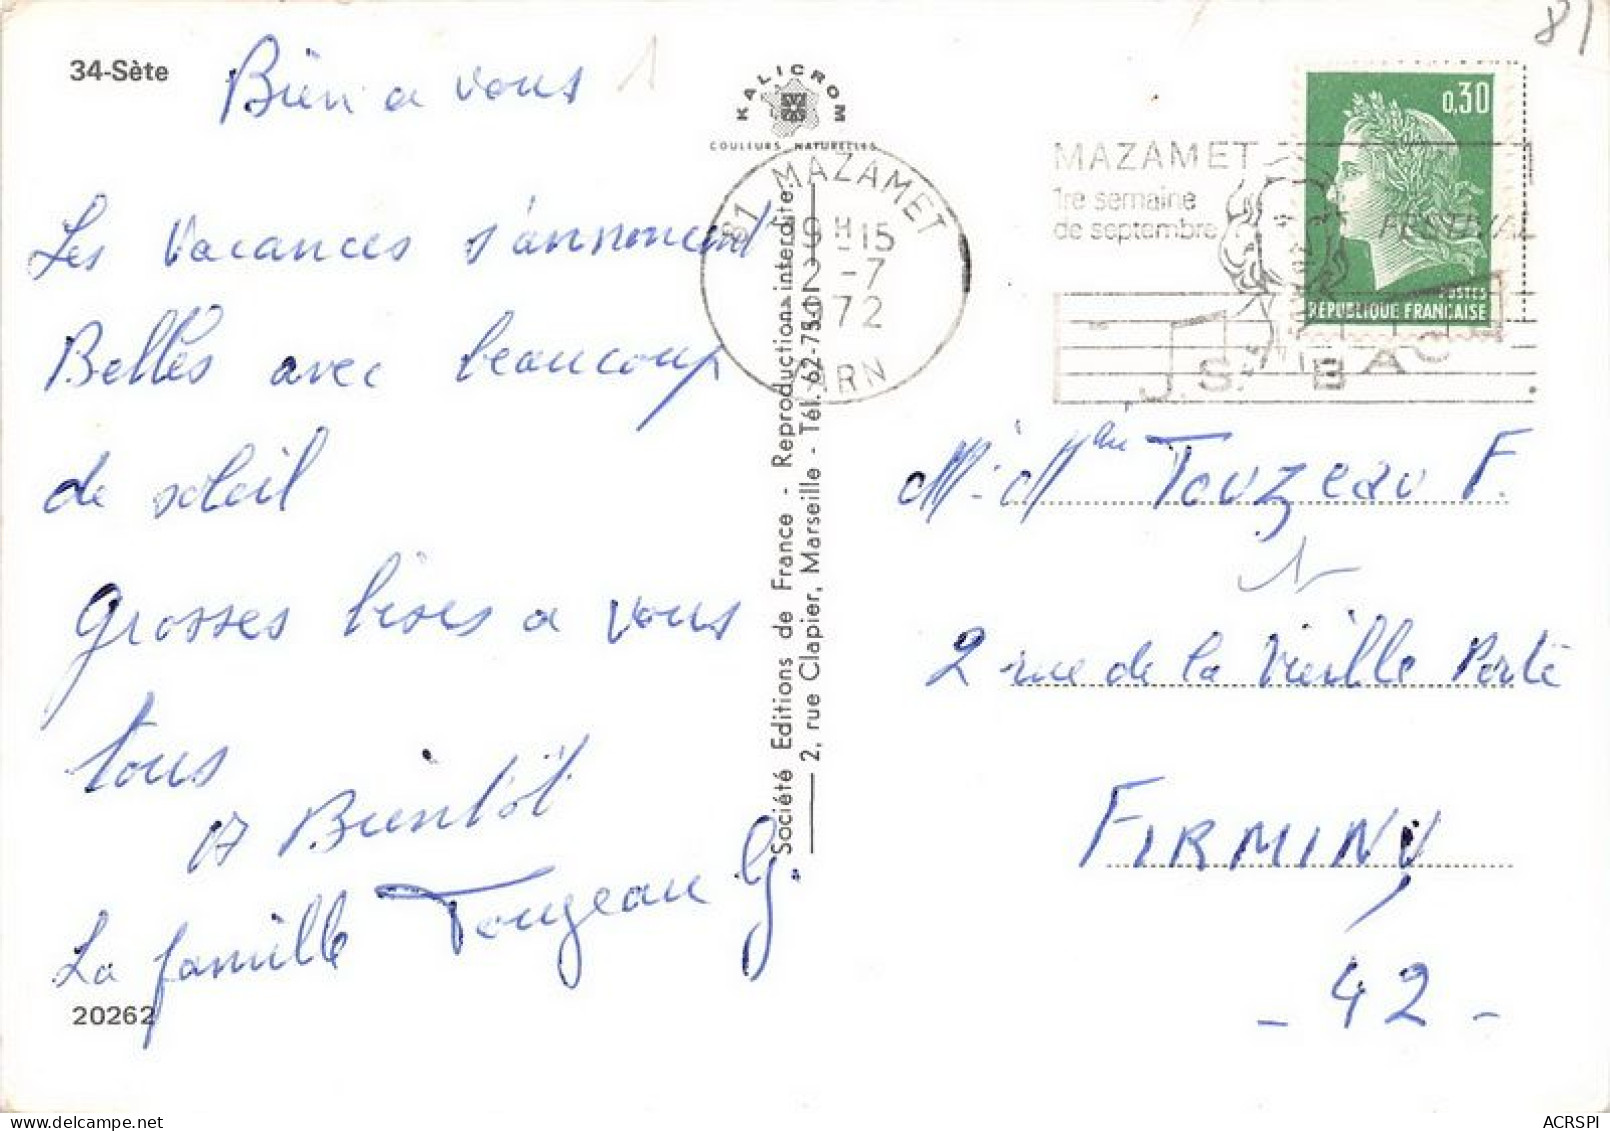 34-Sète
Bien a vous
1
Les vacances s'annoncent
Belles avec beaucoup
de soleil
Grosses bises a vous
tous
a Bientôt
La famille Touzeau G.
20262
KALICROM
COULEURS NATURELLES
Société Editions de France - Reproduction interdite.
2, rue Clapier, Marseille - Tél. 62-75-01
81 MAZAMET
19H15
2-7
1972
TARN
81
MAZAMET
1re semaine
de septembre
FESTIVAL
J.S. BACH
0,30
POSTES
REPUBLIQUE FRANCAISE
Mr. Mme Touzeau F.
2 rue de la Vieille Porte
FIRMINY
- 42 -
ACRSPI